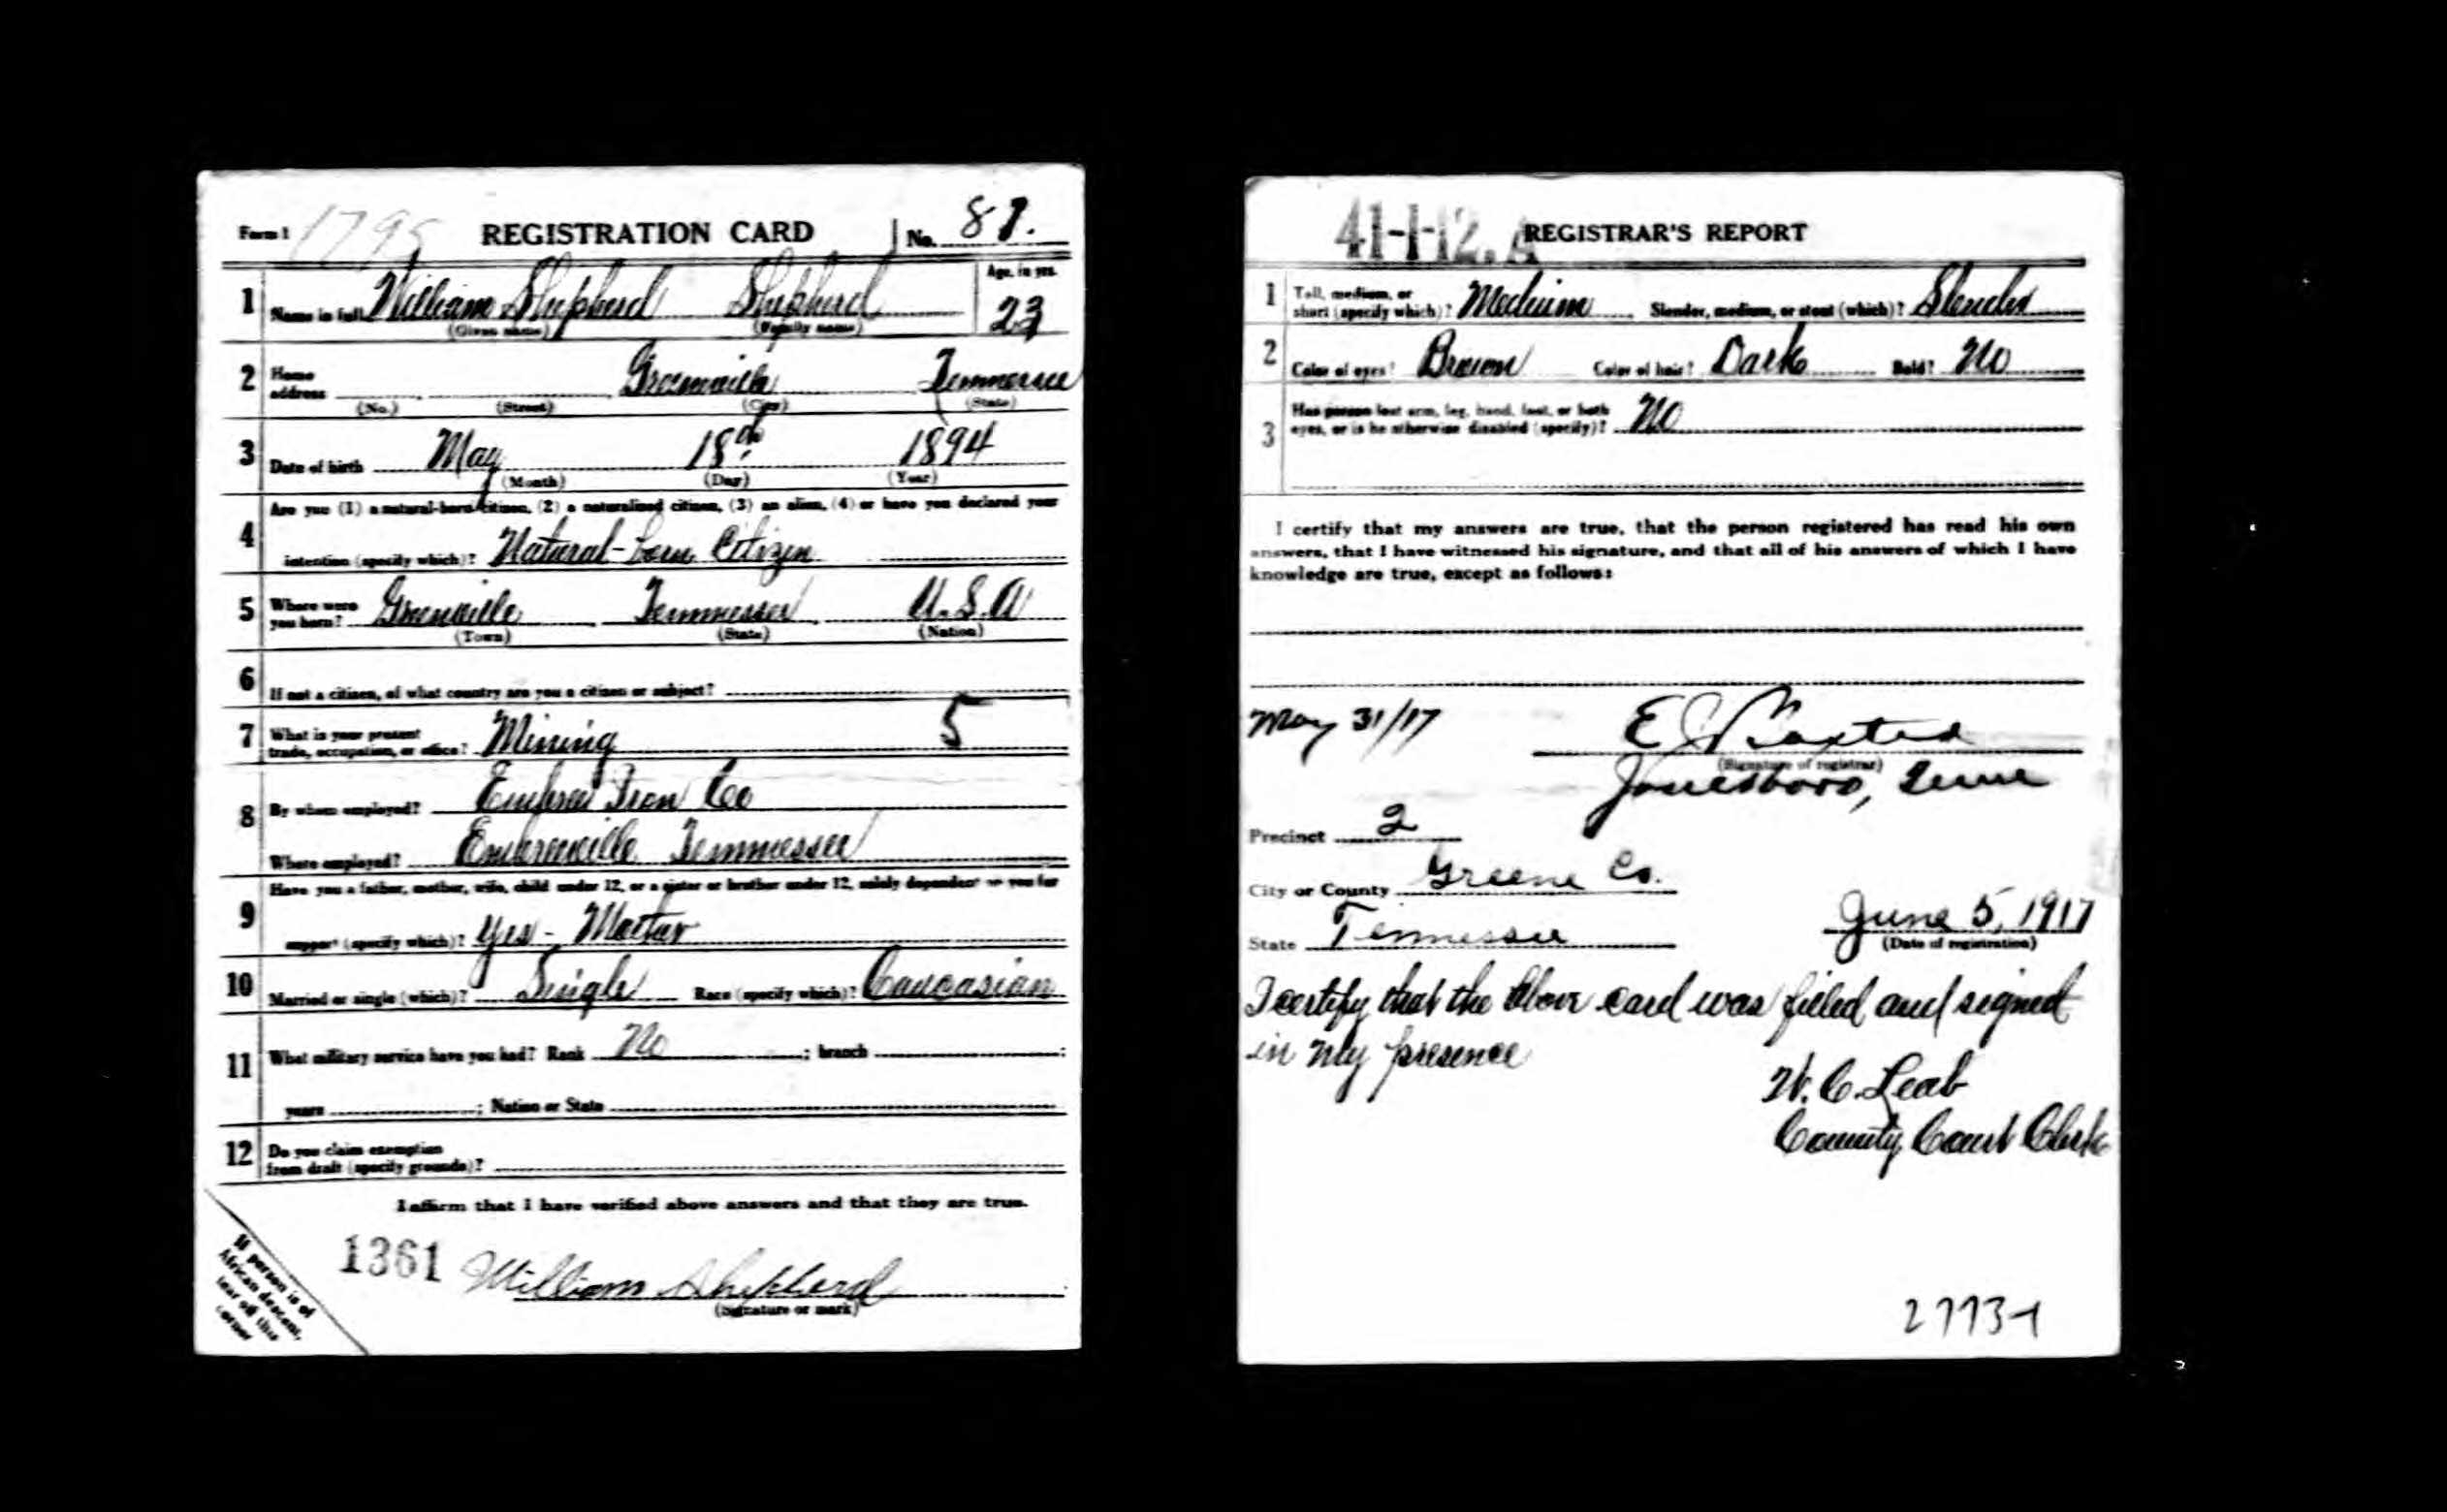 Form 1 1795 REGISTRATION CARD No. 81.
1 Name in full William Shepherd Shepherd Age, in yrs. 23
(Given name) (Family name)
2 Home address Greenville Tennessee
(No.) (Street) (City) (State)
3 Date of birth May 18th 1894
(Month) (Day) (Year)
4 Are you (1) a natural-born citizen, (2) a naturalized citizen, (3) an alien, (4) or have you declared your
intention (specify which)? Natural-born Citizen
5 Where were you born? Greenville Tennessee U.S.A
(Town) (State) (Nation)
6 If not a citizen, of what country are you a citizen or subject?
7 What is your present trade, occupation, or office? Mining 5
8 By whom employed? Embree Iron Co
Where employed? Embreeville Tennessee
9 Have you a father, mother, wife, child under 12, or a sister or brother under 12, solely dependent on you for
support (specify which)? Yes - Mother
10 Married or single (which)? Single Race (specify which)? Caucasian
11 What military service have you had? Rank No ; branch ;
years ; Nation or State
12 Do you claim exemption
from draft (specify grounds)?
I affirm that I have verified above answers and that they are true.
1361 William Shepherd
(Signature or mark)
If person is of
African descent,
tear off this
corner
41-1-12. A REGISTRAR'S REPORT
1 Tall, medium, or
short (specify which)? Medium Slender, medium, or stout (which)? Slender
2 Color of eyes? Brown Color of hair? Dark Bald? No
3 Has person lost arm, leg, hand, foot, or both
eyes, or is he otherwise disabled (specify)? No
I certify that my answers are true, that the person registered has read his own
answers, that I have witnessed his signature, and that all of his answers of which I have
knowledge are true, except as follows:
May 31/17 E J Baxter
(Signature of registrar)
Jonesboro, Tenn
Precinct 2
City or County Greene Co.
State Tennessee June 5, 1917
(Date of registration)
I certify that the above card was filled and signed
in my presence
W. C. Leab
County Court Clerk